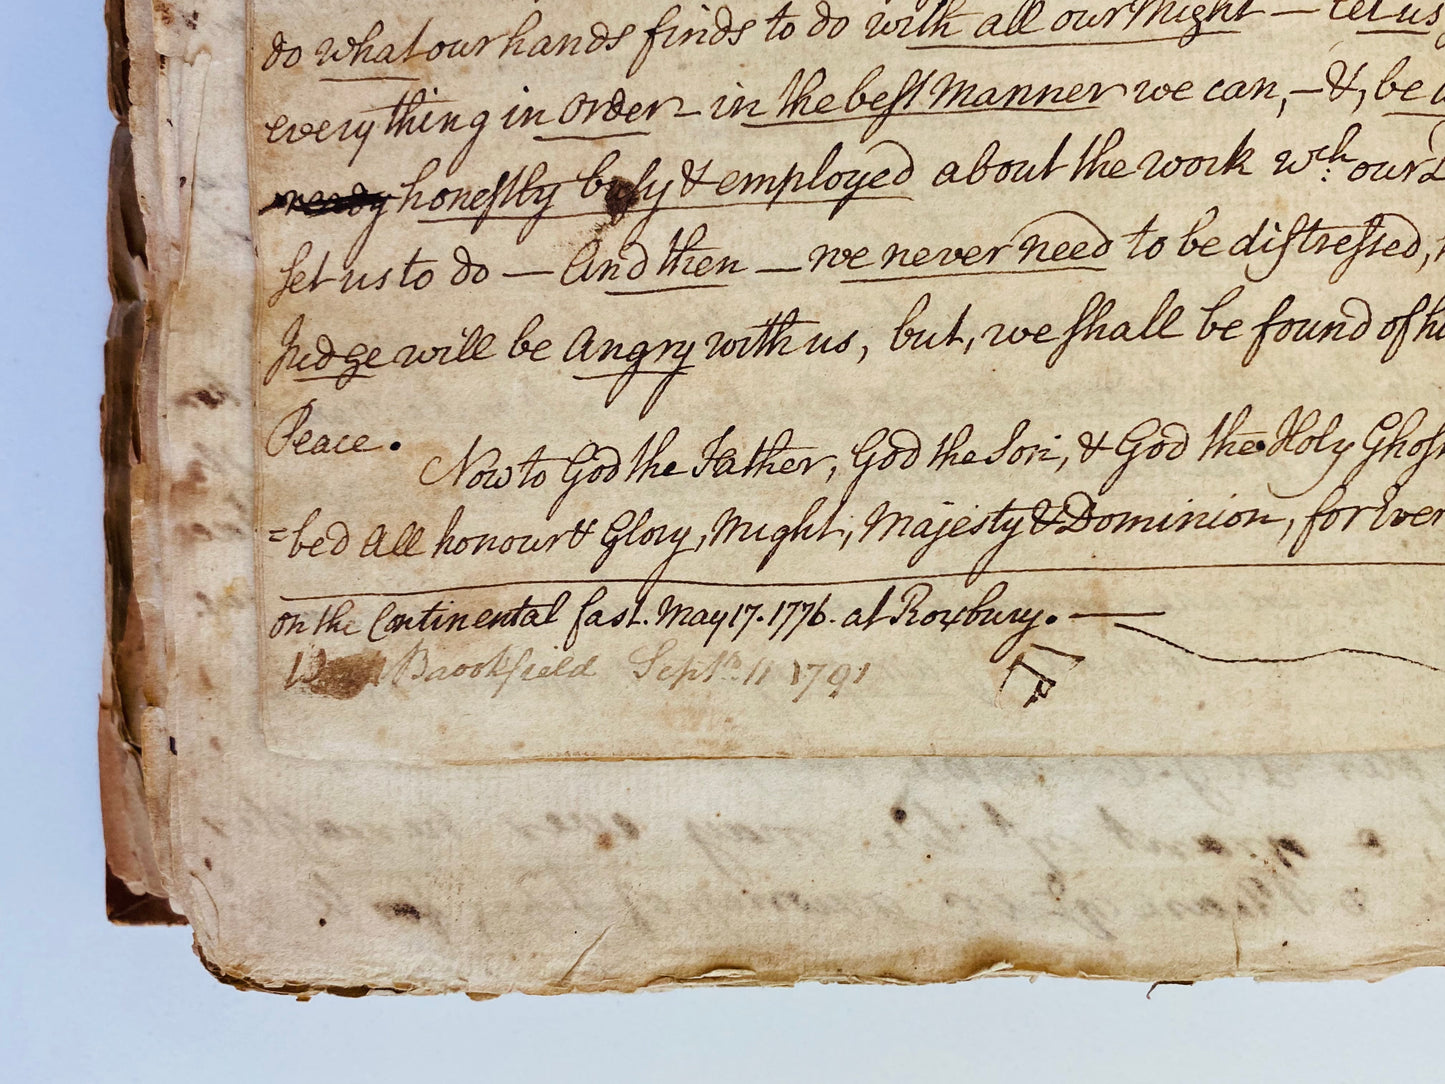 do what our hands finds to do with all our Might — Let us
everything in Order – in the best Manner we can, – &, be
ready honestly busy & employed about the work wch: our
set us to do — And then — we never need to be distressed,
Judge will be Angry with us, but, we shall be found of
Peace.
Now to God the Father, God the Son, & God the Holy Ghost
=bed All honour & Glory, Might, Majesty & Dominion, for Ever
on the Continental fast. May 17. 1776. at Roxbury. —
Brookfield Septr. 11 1791